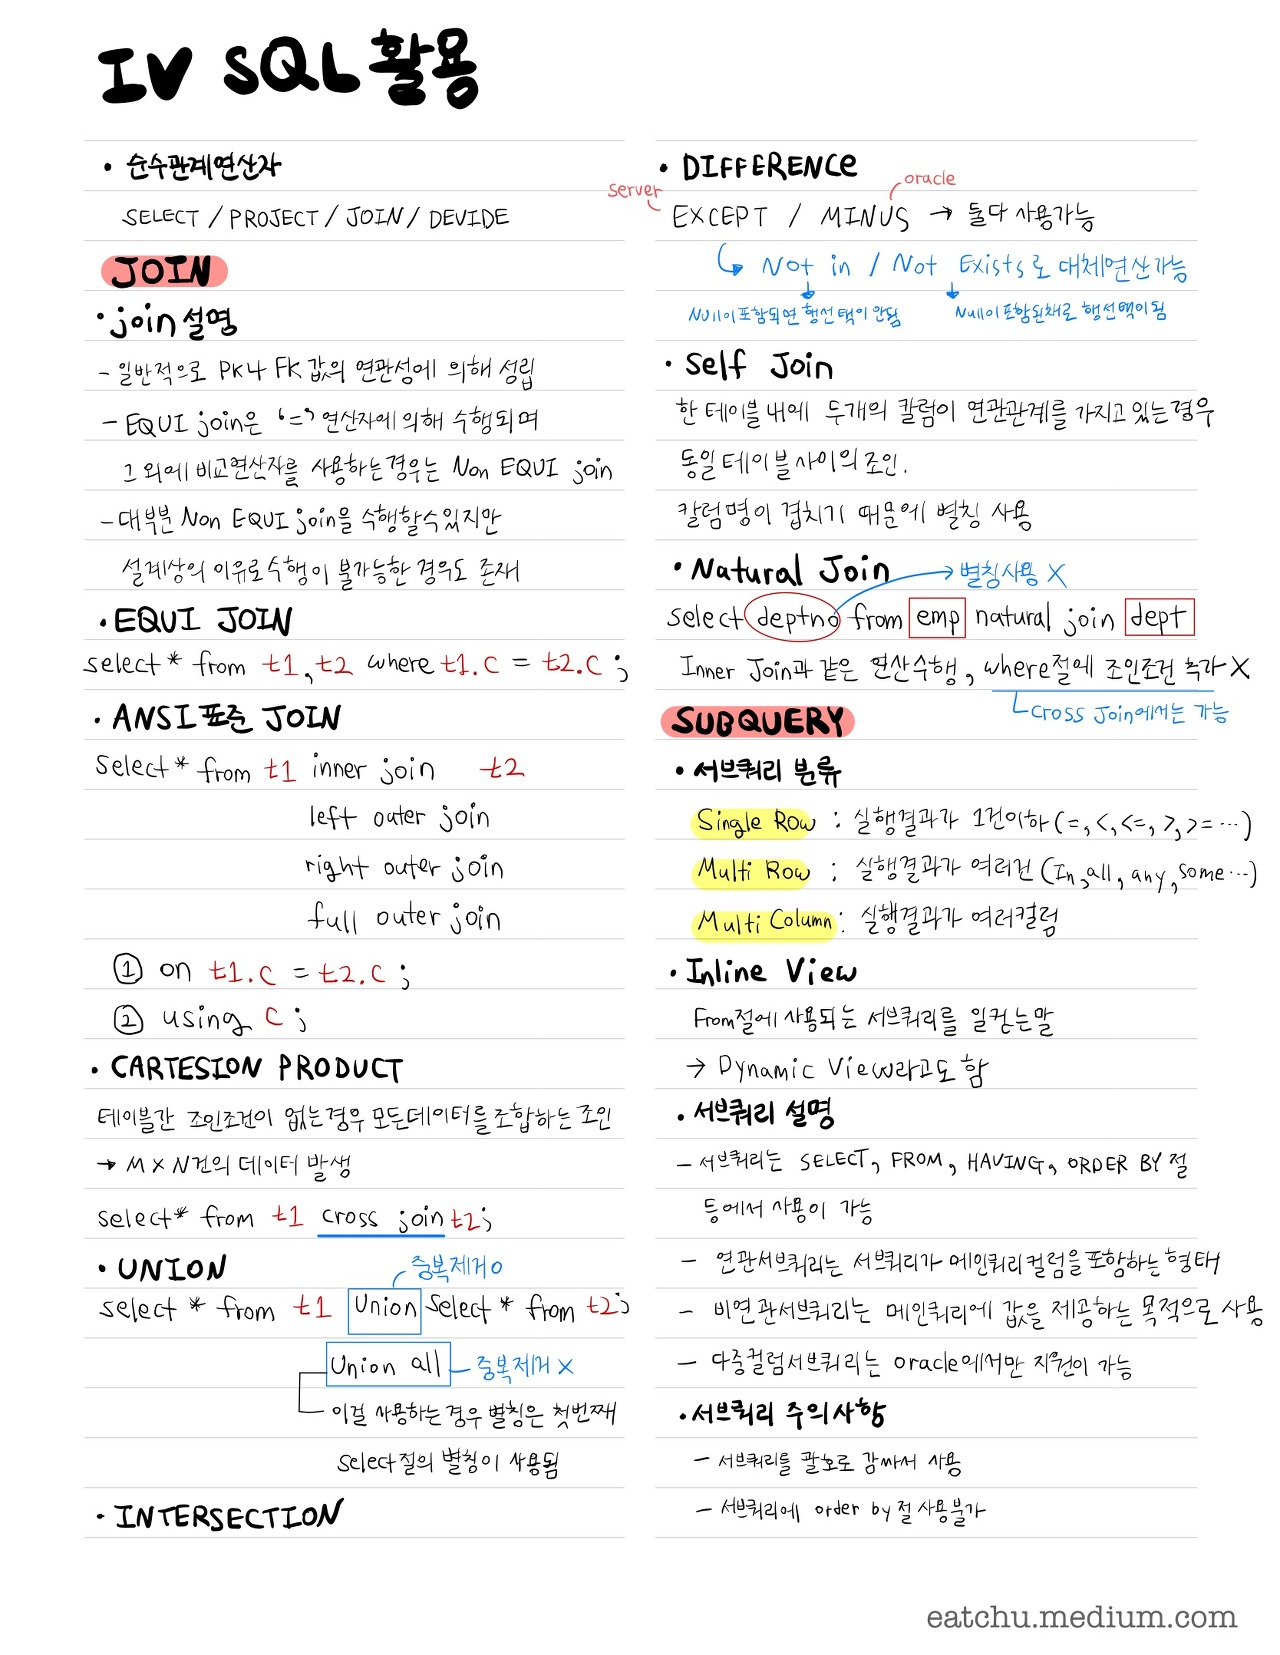 IV SQL 활용
• 순수관계연산자
SELECT / PROJECT / JOIN / DEVIDE
JOIN
• join 설명
- 일반적으로 PK나 FK 값의 연관성에 의해 성립
- EQUI join은 '=' 연산자에 의해 수행되며
그 외에 비교연산자를 사용하는경우는 Non EQUI join
- 대부분 Non EQUI join을 수행할수있지만
설계상의 이유로 수행이 불가능한 경우도 존재
• EQUI JOIN
select * from t1, t2 where t1.c = t2.c ;
• ANSI 표준 JOIN
select * from t1 inner join t2
left outer join
right outer join
full outer join
① on t1.c = t2.c ;
② using c ;
• CARTESION PRODUCT
테이블간 조인조건이 없는경우 모든데이터를 조합하는 조인
→ M X N건의 데이터 발생
select * from t1 cross join t2;
• UNION
중복제거 O
select * from t1 Union select * from t2;
Union all 중복제거 X
이걸 사용하는 경우 별칭은 첫번째
select 절의 별칭이 사용됨
• INTERSECTION
• DIFFERENCE
server oracle
EXCEPT / MINUS → 둘다 사용가능
Not in / Not Exists로 대체연산가능
Null이 포함되면 행선택이 안됨 Null이 포함된채로 행선택이됨
• Self Join
한 테이블 내에 두개의 칼럼이 연관관계를 가지고 있는경우
동일 테이블 사이의 조인.
칼럼명이 겹치기 때문에 별칭 사용
• Natural Join → 별칭사용 X
select deptno from emp natural join dept
Inner Join과 같은 연산수행, where절에 조인조건 추가 X
Cross Join에서는 가능
SUBQUERY
• 서브쿼리 분류
Single Row : 실행결과가 1건이하 (=, <, <=, >, >= ···)
Multi Row : 실행결과가 여러건 (In, all, any, some ···)
Multi Column : 실행결과가 여러컬럼
• Inline View
From절에 사용되는 서브쿼리를 일컫는말
→ Dynamic View라고도 함
• 서브쿼리 설명
- 서브쿼리는 SELECT, FROM, HAVING, ORDER BY 절
등에서 사용이 가능
- 연관서브쿼리는 서브쿼리가 메인쿼리컬럼을 포함하는 형태
- 비연관서브쿼리는 메인쿼리에 값을 제공하는 목적으로 사용
- 다중컬럼서브쿼리는 oracle에서만 지원이 가능
• 서브쿼리 주의사항
- 서브쿼리를 괄호로 감싸서 사용
- 서브쿼리에 order by 절 사용불가
eatchu.medium.com